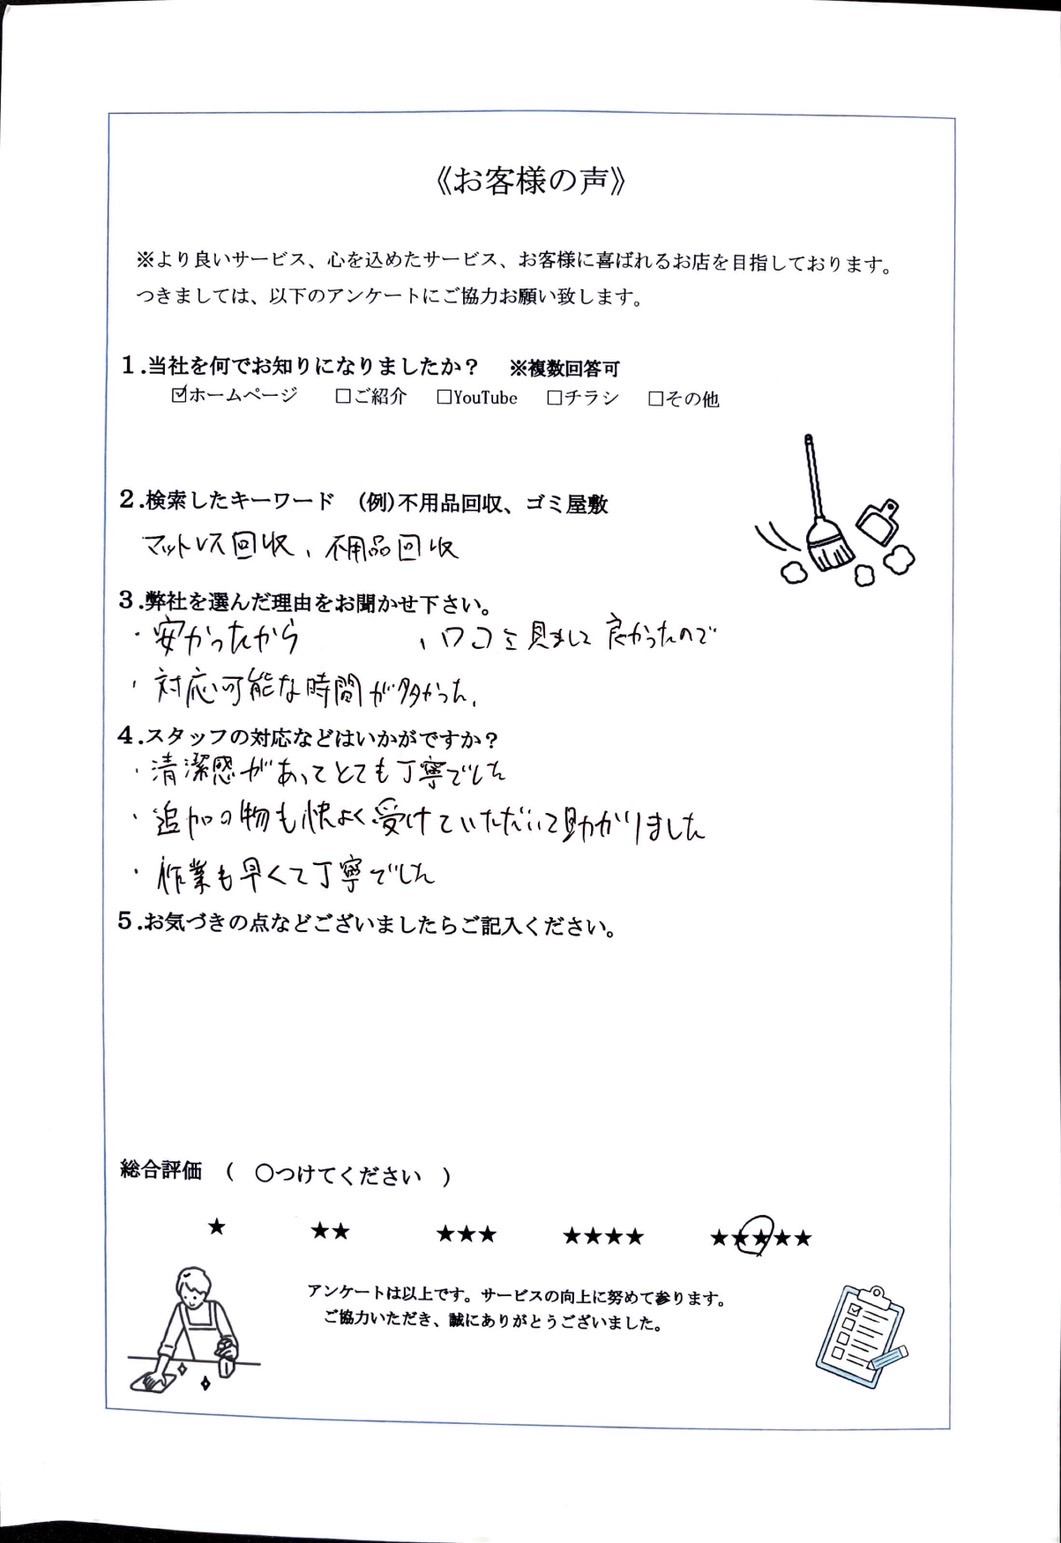 《お客様の声》
※より良いサービス、心を込めたサービス、お客様に喜ばれるお店を目指しております。
つきましては、以下のアンケートにご協力お願い致します。
1.当社を何でお知りになりましたか？ ※複数回答可
☑ホームページ □ご紹介 □YouTube □チラシ □その他
2.検索したキーワード (例)不用品回収、ゴミ屋敷
マットレス回収、不用品回収
3.弊社を選んだ理由をお聞かせ下さい。
・安かったから ・口コミ見まして良かったので
・対応可能な時間が多かった。
4.スタッフの対応などはいかがですか？
・清潔感があってとても丁寧でした
・追加の物も快よく受けていただいて助かりました
・作業も早くて丁寧でした
5.お気づきの点などございましたらご記入ください。
総合評価 （ ○つけてください ）
★ ★★ ★★★ ★★★★ ★★★★★
アンケートは以上です。サービスの向上に努めて参ります。
ご協力いただき、誠にありがとうございました。